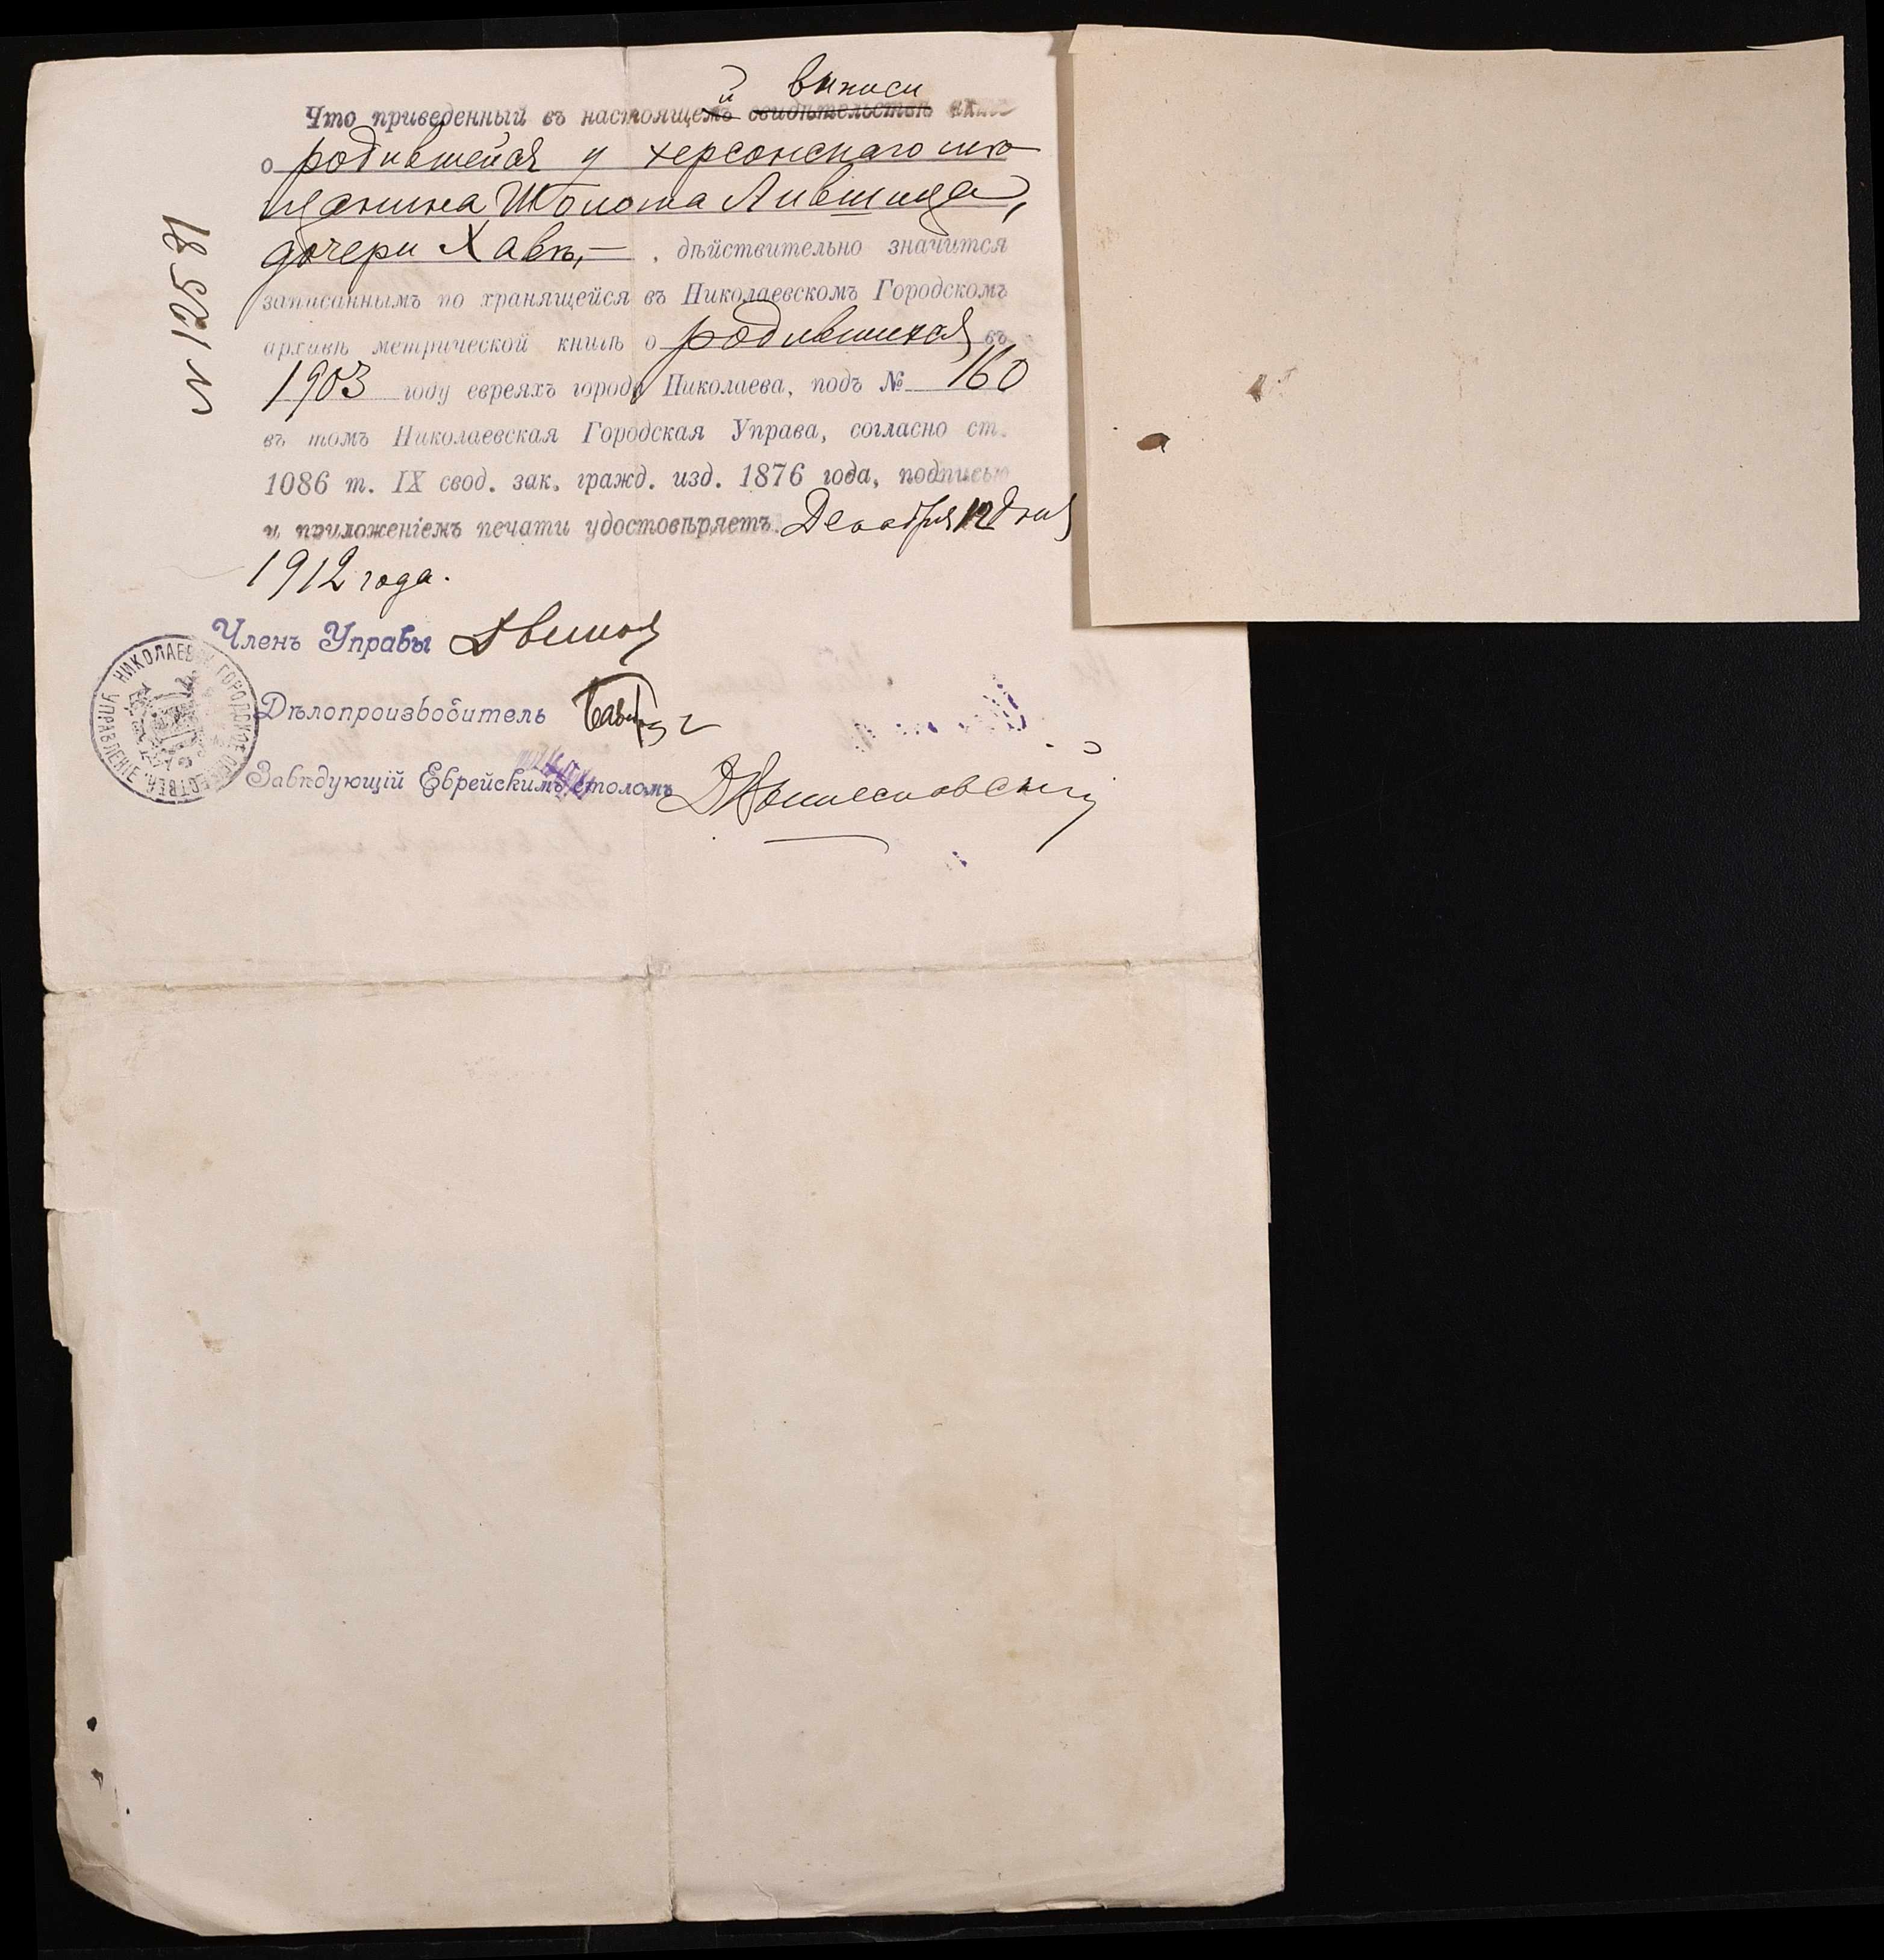 выписи
Что приведенный въ настоящемъ й свидѣтельствѣ актъ
о родившейся у херсонскаго мѣ-
щанина Шолома Лившица,
дочери Хавѣ,— , дѣйствительно значится
записаннымъ по хранящейся въ Николаевскомъ Городскомъ
архивѣ метрической книгѣ о родившихся въ
1903 году евреяхъ города Николаева, подъ № 160
въ томъ Николаевская Городская Управа, согласно ст.
1086 т. IX свод. зак. гражд. изд. 1876 года, подписью
и приложеніемъ печати удостовѣряетъ. Декабря 12 дня
1912 года.
N 12581
Членъ Управы
Дѣлопроизводитель
Завѣдующій Еврейскимъ столомъ
НИКОЛАЕВСК. ГОРОДСКОЕ ОБЩЕСТВЕН. УПРАВЛЕНІЕ